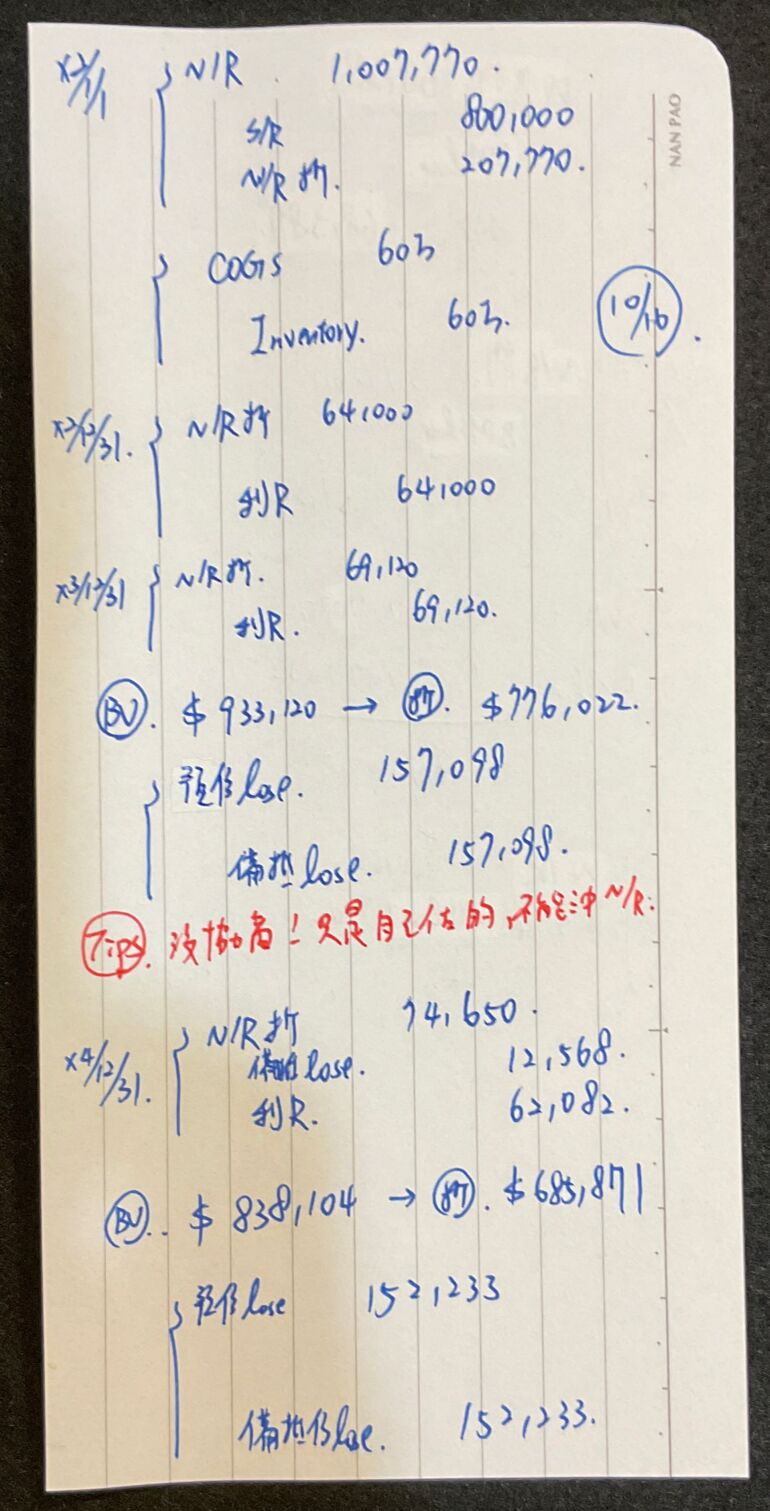 X2/1/1 N/R 1,007,770.
S/R 800,000
N/R折. 207,770.
COGS 60万
Inventory. 60万.
10/16.
NAN PAO
X2/12/31. N/R折 64,000
利R 64,000
X3/12/31 N/R折. 69,120
利R. 69,120.
BV. $933,120 → 折. $776,022.
預信lose. 157,098
備抵lose. 157,098.
Tips. 沒協商!只是自己估的,不能沖N/R.
X4/12/31. N/R折 74,650.
備抵lose. 12,568.
利R. 62,082.
BV.. $838,104 → 折. $685,871
預信lose 152,233
備抵信lose. 152,233.